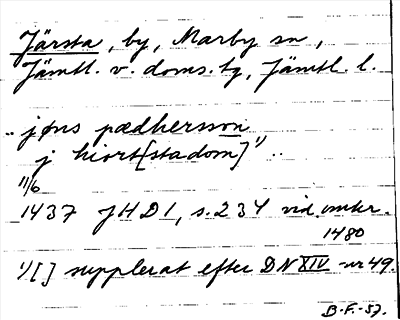 Järsta, by, Marby sn,
Jämtl. v. doms. tg, Jämtl. l.
.. jøns pædhersson
j hiort[stadom]¹⁾ ..
11/6
1437 JHD1, s. 234 vid.
1480
1) [] supplerat efter DN XIV nr 49.
B.F.-57.